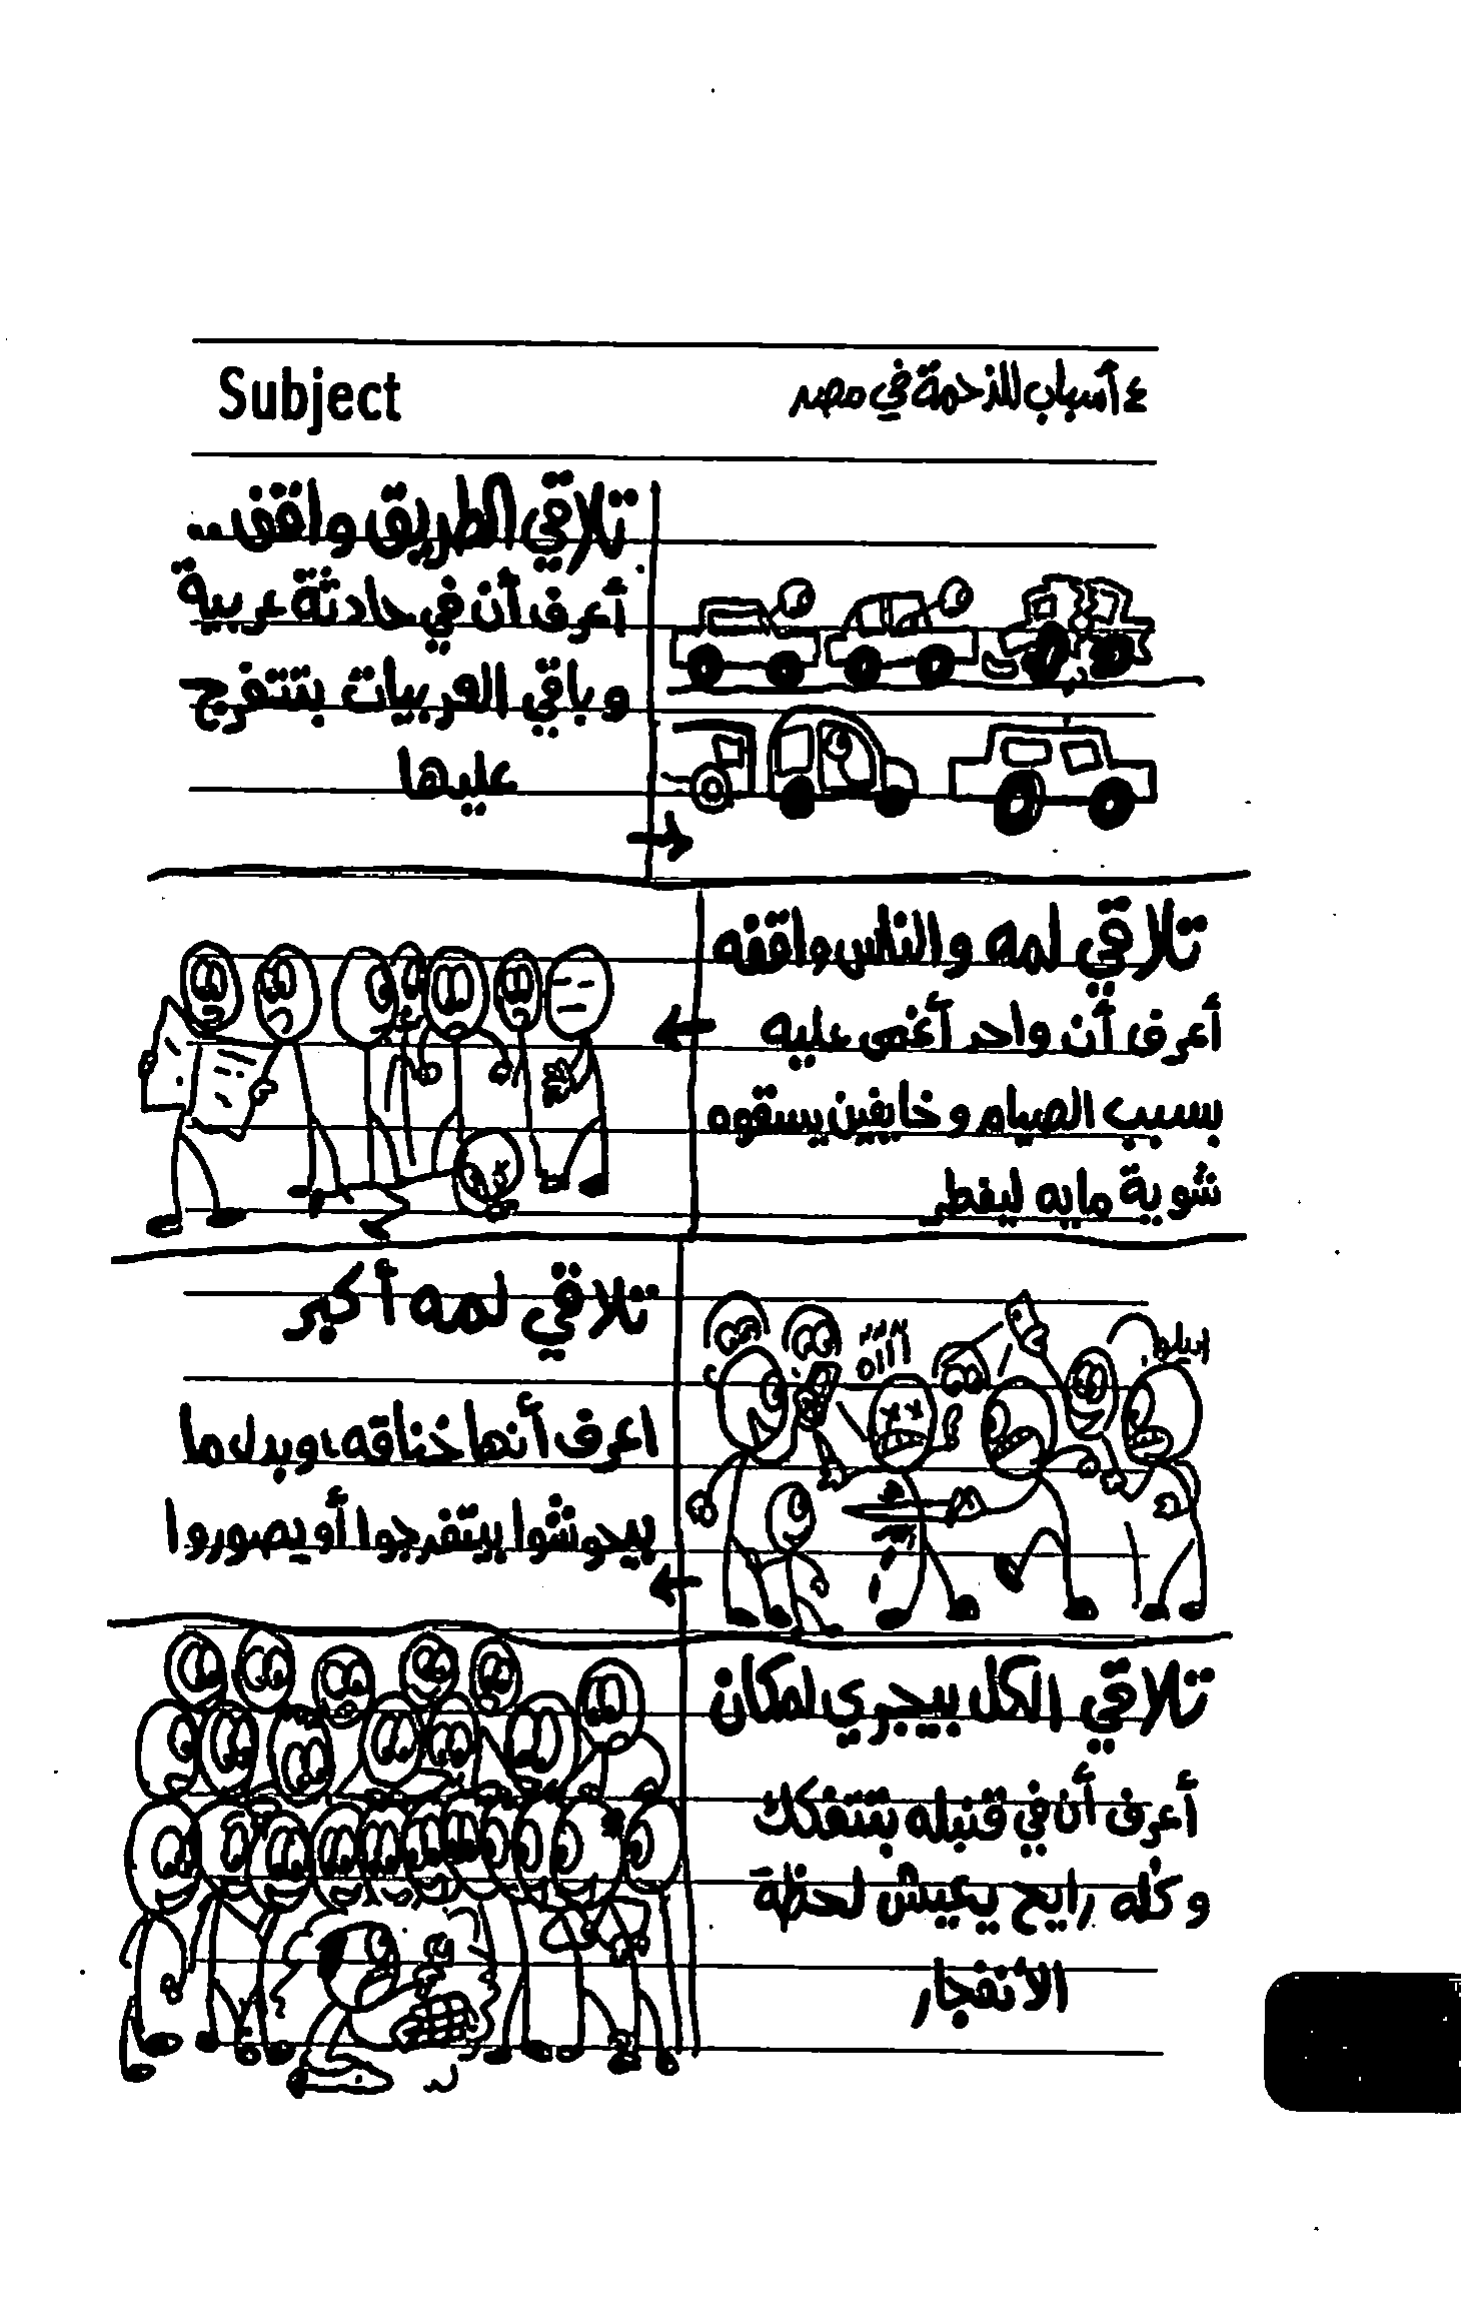 Subject
٤ أسباب للزحمة في مصر
تلاقي الطريق واقف..
أعرف أن في حادثة عربية
وباقي العربيات بتتفرج
عليها
تلاقي لمه والناس واقفه
أعرف أن واحد أغمى عليه
بسبب الصيام و خايفين يسقوه
شوية مايه ليفطر
تلاقي لمه أكبر
اعرف أنها خناقه، وبدل ما
بيحوشوا بيتفرجوا أو يصوروا
تلاقي الكل بيجري لمكان
أعرف أن في قنبله بتتفكك
وكله رايح يعيش لحظة
الأنفجار